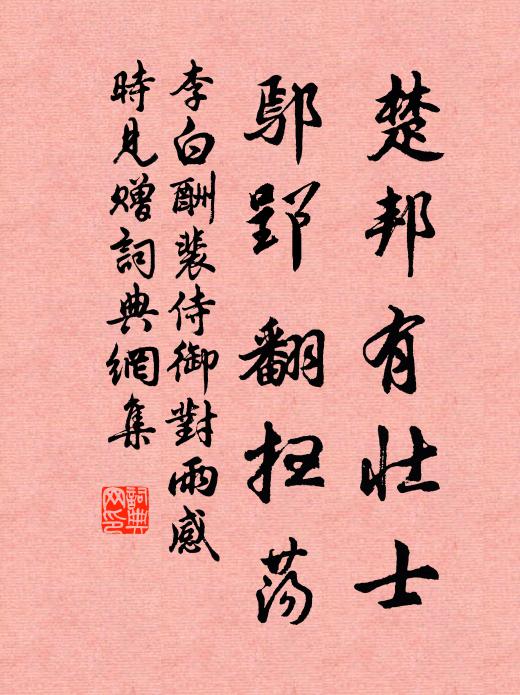 楚邦有壮士
鄢郢翻扫荡
李白酬裴侍御對雨感
時見赠詞典網集
詞典网印